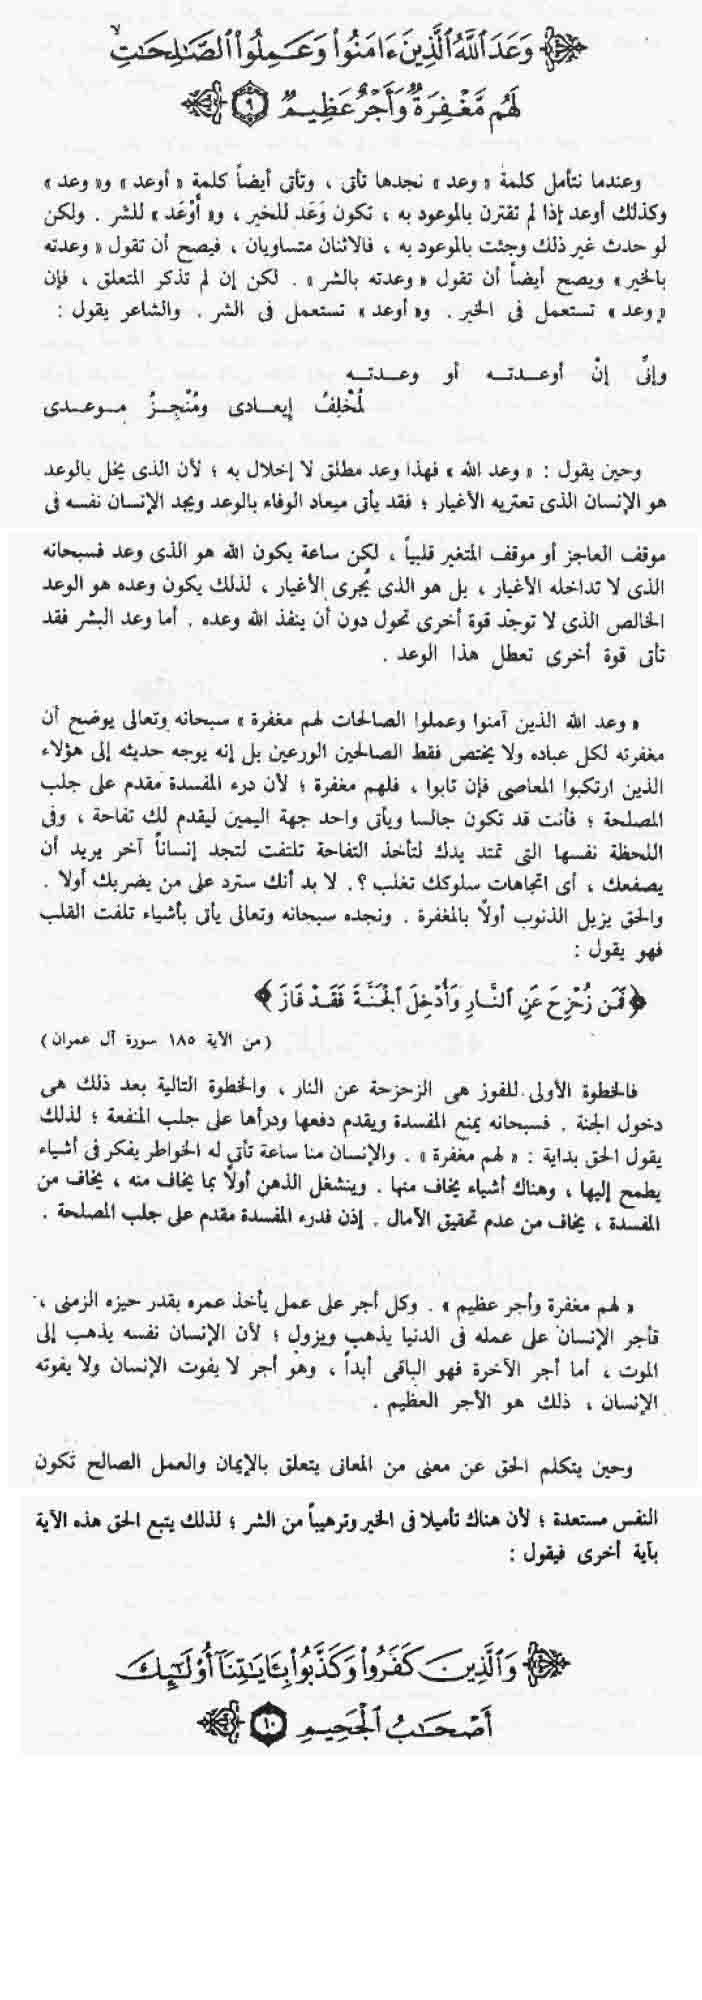 وَعَدَ ٱللَّهُ ٱلَّذِينَ ءَامَنُواْ وَعَمِلُواْ ٱلصَّٰلِحَٰتِۙ
لَهُم مَّغْفِرَةٌ وَأَجْرٌ عَظِيمٌ ٩
وعندما نتأمل كلمة « وعد » نجدها تأتى ، وتأتى أيضاً كلمة « أوعد » و« وعد »
وكذلك أوعد إذا لم تقترن بالموعود به ، تكون وَعَد للخير ، و« أَوْعَد » للشر . ولكن
لو حدث غير ذلك وجئت بالموعود به ، فالاثنان متساويان ، فيصح أن تقول « وعدته
بالخير » ويصح أيضاً أن تقول « وعدته بالشر » . لكن إن لم تذكر المتعلق ، فإن
« وعد » تستعمل فى الخير . و« أوعد » تستعمل فى الشر . والشاعر يقول :
وإنِّى إنْ أوعـدتـه أو وعـدتـه
لَمُخْلِفُ إيعـادى ومُنْجِـزُ مـوعـدى
وحين يقول : « وعد الله » فهذا وعد مطلق لا إخلال به ؛ لأن الذى يخل بالوعد
هو الإنسان الذى تعتريه الأغيار ؛ فقد يأتى ميعاد الوفاء بالوعد ويجد الإنسان نفسه فى
موقف العاجز أو موقف المتغير قلبياً ، لكن ساعة يكون الله هو الذى وعد فسبحانه
الذى لا تداخله الأغيار ، بل هو الذى يُجرى الأغيار ، لذلك يكون وعده هو الوعد
الخالص الذى لا توجد قوة أخرى تحول دون أن ينفذ الله وعده . أما وعد البشر فقد
تأتى قوة أخرى تعطل هذا الوعد .
« وعد الله الذين آمنوا وعملوا الصالحات لهم مغفرة » سبحانه وتعالى يوضح أن
مغفرته لكل عباده ولا يختص فقط الصالحين الورعين بل إنه يوجه حديثه إلى هؤلاء
الذين ارتكبوا المعاصى فإن تابوا ، فلهم مغفرة ؛ لأن درء المفسدة مقدم على جلب
المصلحة ؛ فأنت قد تكون جالسا ويأتى واحد جهة اليمين ليقدم لك تفاحة ، وفى
اللحظة نفسها التى تمتد يدك لتأخذ التفاحة تلتفت لتجد إنساناً آخر يريد أن
يصفعك ، أى اتجاهات سلوكك تغلب ؟. لا بد أنك سترد على من يضربك أولا .
والحق يزيل الذنوب أولاً بالمغفرة . ونجده سبحانه وتعالى يأتى بأشياء تلفت القلب
فهو يقول :
﴿ فَمَن زُحْزِحَ عَنِ ٱلنَّارِ وَأُدْخِلَ ٱلْجَنَّةَ فَقَدْ فَازَ ﴾
( من الآية ١٨٥ سورة آل عمران )
فالخطوة الأولى للفوز هى الزحزحة عن النار ، والخطوة التالية بعد ذلك هى
دخول الجنة . فسبحانه يمنع المفسدة ويقدم دفعها ودرأها على جلب المنفعة ؛ لذلك
يقول الحق بداية : « لهم مغفرة » . والإنسان منا ساعة تأتى له الخواطر يفكر فى أشياء
يطمح إليها ، وهناك أشياء يخاف منها . وينشغل الذهن أولاً بما يخاف منه ، يخاف من
المفسدة ، يخاف من عدم تحقيق الآمال . إذن فدرء المفسدة مقدم على جلب المصلحة .
« لهم مغفرة وأجر عظيم » . وكل أجر على عمل يأخذ عمره بقدر حيزه الزمنى ،
فأجر الإنسان على عمله فى الدنيا يذهب ويزول ؛ لأن الإنسان نفسه يذهب إلى
الموت ، أما أجر الآخرة فهو الباقى أبداً ، وهو أجر لا يفوت الإنسان ولا يفوته
الإنسان ، ذلك هو الأجر العظيم .
وحين يتكلم الحق عن معنى من المعانى يتعلق بالإيمان والعمل الصالح تكون
النفس مستعدة ؛ لأن هناك تأميلا فى الخير وترهيباً من الشر ؛ لذلك يتبع الحق هذه الآية
بآية أخرى فيقول :
وَٱلَّذِينَ كَفَرُواْ وَكَذَّبُواْ بِـَٔايَٰتِنَآ أُوْلَٰٓئِكَ
أَصْحَٰبُ ٱلْجَحِيمِ ١٠